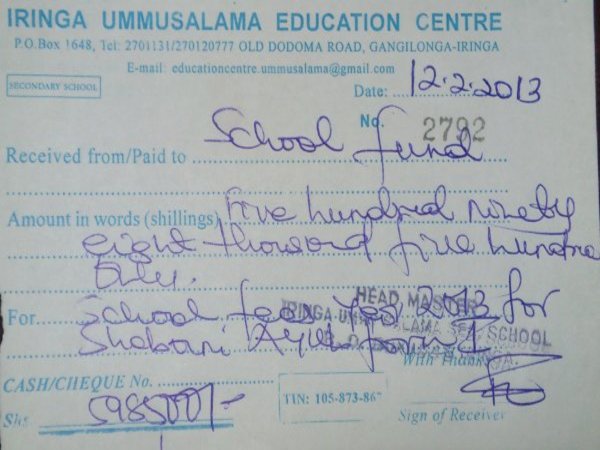 IRINGA UMMUSALAMA EDUCATION CENTRE
P.O.Box 1648, Tel: 2701131/270120777 OLD DODOMA ROAD, GANGILONGA-IRINGA
E-mail: educationcentre.ummusalama@gmail.com
SECONDARY SCHOOL
Date: 12.2.2013
No. 2792
Received from/Paid to School fund
Amount in words (shillings) Five hundred ninety
eight thousand five hundred
only.
HEAD, MASTER
For School fees 2013 for
IRINGA UMMUSALAMA SEC. SCHOOL
Shabani
IRINGA.
With Thanks
CASH/CHEQUE No.
TIN: 105-873-867
Shs 598500/-
Sign of Receiver